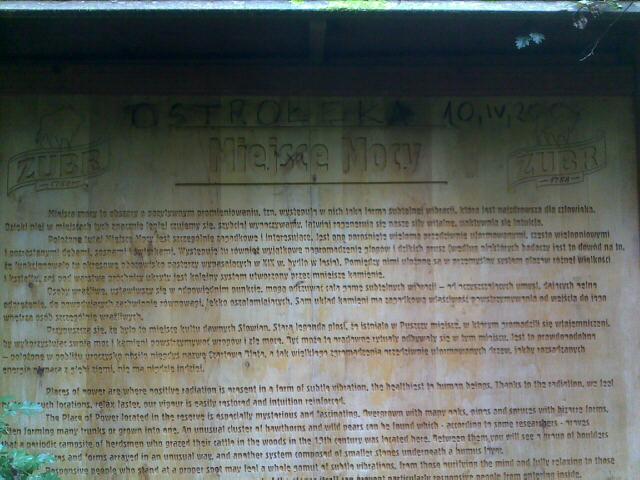 OSTROŁĘKA 10,IV,
ŻUBR
1768
Miejsce Mocy
ŻUBR
1768
Miejsca mocy to obszary o pozytywnym promieniowaniu, tzn. występują w nich taka forma subtelnej wibracji, która jest najzdrowsza dla człowieka.
Dzięki niej w miejscach tych znacznie lepiej czujemy się, szybciej wypoczywamy, łatwiej regenerują się nasze siły witalne, uaktywnia się intuicja.
Położone tutaj Miejsce Mocy jest szczególnie zagadkowe i interesujące. Jest ono porośnięte wieloma przedziwnie uformowanymi, często wielopniowymi
i pozrastanymi dębami, sosnami i świerkami. Występuje tu również wyjątkowe nagromadzenie głogów i dzikich grusz (według niektórych badaczy jest to dowód na to,
że funkcjonowało tu okresowe obozowisko pasterzy wypasających w XIX w. bydło w lasie). Pomiędzy nimi ułożone są w przemyślny system głazów różnej wielkości
i kształtu, zaś pod warstwą próchnicy ukryty jest kolejny system utworzony przez mniejsze kamienie.
Osoby wrażliwe, ustawiwszy się w odpowiednim punkcie, mogą odczuwać całą gamę subtelnych wibracji – od oczyszczających umysł, dających pełne
odprężenie, do powodujących zachwianie równowagi, lekko oszałamiających. Sam układ kamieni ma zagadkową właściwość powstrzymywania od wejścia do tego
miejsca osób szczególnie wrażliwych.
Przypuszcza się, że było to miejsce kultu dawnych Słowian. Stara legenda głosi, że istniało w Puszczy miejsce, w którym gromadzili się wtajemniczeni,
by wykorzystując swoją moc i kamieni powstrzymywać wrogów i złe moce. Być może te pradawne rytuały odbywały się w tym miejscu. Jest to prawdopodobne
– położone w pobliżu uroczysko nosiło niegdyś nazwę Czartowa, a tak wielkiego zgromadzenia przedziwnie uformowanych drzew, jakby rozsadzanych
energią z głębi ziemi, nie ma nigdzie indziej.
Places of power are where positive radiation is present in a form of subtle vibration, the healthiest to human beings. Thanks to the radiation, we feel
such locations, relax faster, our vigour is easily restored and intuition reinforced.
The Place of Power located in the reserve is especially mysterious and fascinating. Overgrown with many oaks, pines and spruces with bizarre forms,
often forming many trunks or grown into one. An unusual cluster of hawthorns and wild pears can be found which - according to some researchers - proves
that a periodic campsite of herdsmen who grazed their cattle in the woods in the 19th century was located here. Between them you will see a group of boulders
and forms arrayed in an unusual way, and another system composed of smaller stones underneath a humus layer.
Responsive people who stand at a proper spot may feel a whole gamut of subtle vibrations, from those purifying the mind and fully relaxing to those
of the stones itself can prevent particularly responsive people from entering inside.